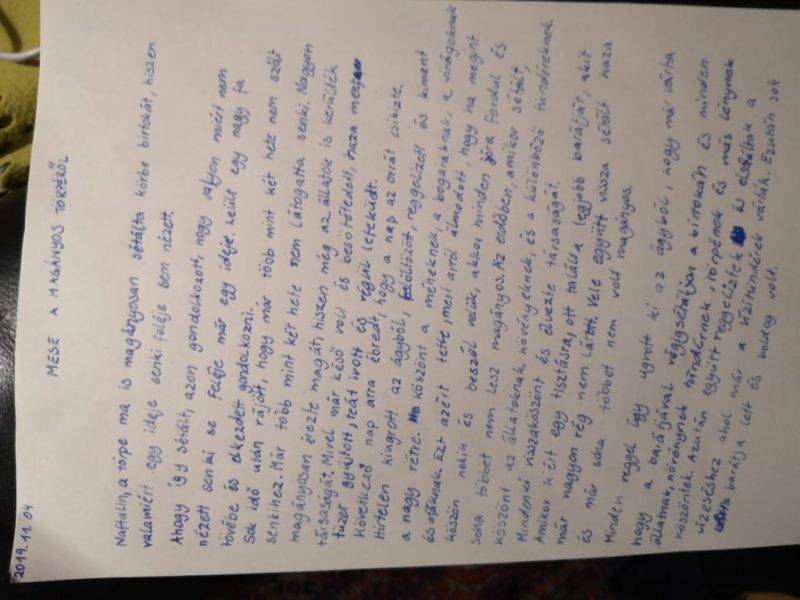 2019.11.04
MESE A MAGÁNYOS TÖRPÉRŐL
Naftalin, a törpe ma is magányosan sétálta körbe birtokát, hiszen
valamiért egy ideje senki feléje sem nézett.
Ahogy így sétált, azon gondolkozott, hogy vajon miért nem
nézett senki se feléje már egy ideje leült egy nagy fa
tövébe és elkezdett gondolkozni.
Sok idő után rájött, hogy már több mint két hete nem szólt
senkihez. Már több mint két hete nem látogatta senki. Nagyon
magányosan érezte magát, hiszen még az állatok is kerülték
társaságát. Mivel már késő volt és besötétedett, haza ment
tüzet gyújtott, teát ivott és végül lefeküdt.
Következő nap arra ébredt, hogy a nap az orrát csikizte.
Hirtelen kiugrott az ágyból, felöltözött, reggelizett és kiment
a nagy rétre. köszönt a méheknek, a bogaraknak, a virágoknak
és a fáknak. Ezt azért tette, mert arról álmodott, hogy ha megint
köszön nekik és beszél velük, akkor minden jóra fordul és
soha többet nem lesz magányos. Az erdőben, amikor sétált,
köszönt az állatoknak, növényeknek, és a különböző tündéreknek.
Mindenki visszaköszönt és élvezte társaságát.
Amikor kiért egy tisztásra, ott találta legjobb barátját, akit
már nagyon rég nem látott. Vele együtt vissza sétált haza
és már soha többet nem volt magányos.
Minden reggel úgy ugrott ki az ágyból, hogy már várta
hogy a barátjával végigsétáljon a birtokán és minden
állatnak, növénynek tündérnek, törpének és más lénynek
köszöntek. Azután együtt reggeliztek és elsétáltak a
vízeséshez ahol már a vízitündérek várták. Ezután sok
barátja lett és boldog volt.